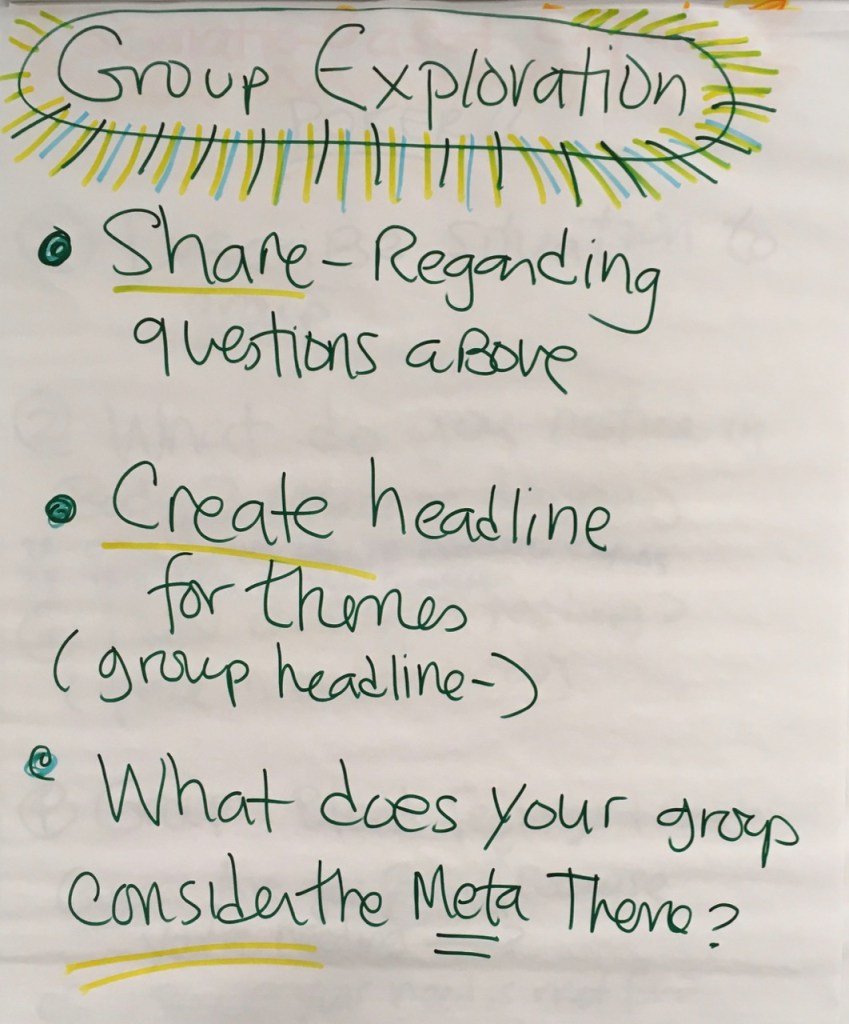 Group Exploration
Share - Regarding
questions aBove
Create headline
for themes
(group headline-)
What does your group
Consider the Meta Theme?